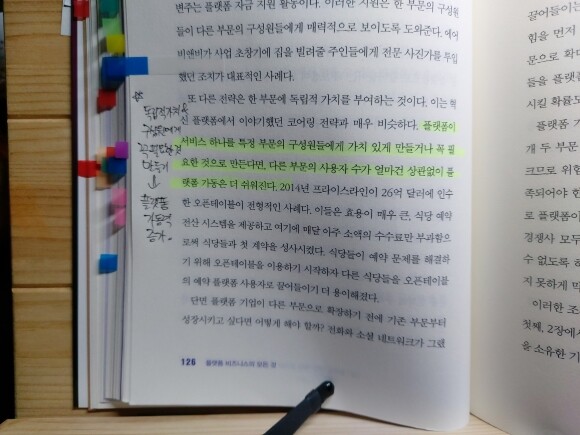 변주는 플랫폼 자금 지원 활동이다. 이러한 지원은 한 부문의 구성원
들이 다른 부문의 구성원들에게 매력적으로 보이도록 도와준다. 에어
비앤비가 사업 초창기에 집을 빌려줄 주인들에게 전문 사진가를 투입
했던 조치가 대표적인 사례다.
또 다른 전략은 한 부문에 독립적 가치를 부여하는 것이다. 이는 혁
신 플랫폼에서 이야기했던 코어링 전략과 매우 비슷하다. 플랫폼이
서비스 하나를 특정 부문의 구성원들에게 가치 있게 만들거나 꼭 필
요한 것으로 만든다면, 다른 부문의 사용자 수가 얼마건 상관없이 플
랫폼 가동은 더 쉬워진다. 2014년 프라이스라인이 26억 달러에 인수
한 오픈테이블이 전형적인 사례다. 이들은 효용이 매우 큰, 식당 예약
전산 시스템을 제공하고 여기에 매달 아주 소액의 수수료만 부과함으
로써 식당들과 첫 계약을 성사시켰다. 식당들이 예약 문제를 해결하
기 위해 오픈테이블을 이용하기 시작하자 다른 식당들을 오픈테이블
의 예약 플랫폼 사용자로 끌어들이기 더 용이해졌다.
단면 플랫폼 기업이 다른 부문으로 확장하기 전에 기존 부문부터
성장시키고 싶다면 어떻게 해야 할까? 전화와 소셜 네트워크가 그랬
126 플랫폼 비즈니스의 모든 것
독립적가치
구성원에게
꼭 필요한것
만들기
↓
플랫폼
가동력
증가.
끌어들이는
힘을 먼저
문으로 확대
들을 플랫폼
시킬 확률도
플랫폼 기
개 두 부문
크므로 위험
족되어야 한
로 플랫폼이
경쟁사 모두
수 없도록 하
지 못하게 막
이러한 조
첫째, 2장에서
을 소유한 기